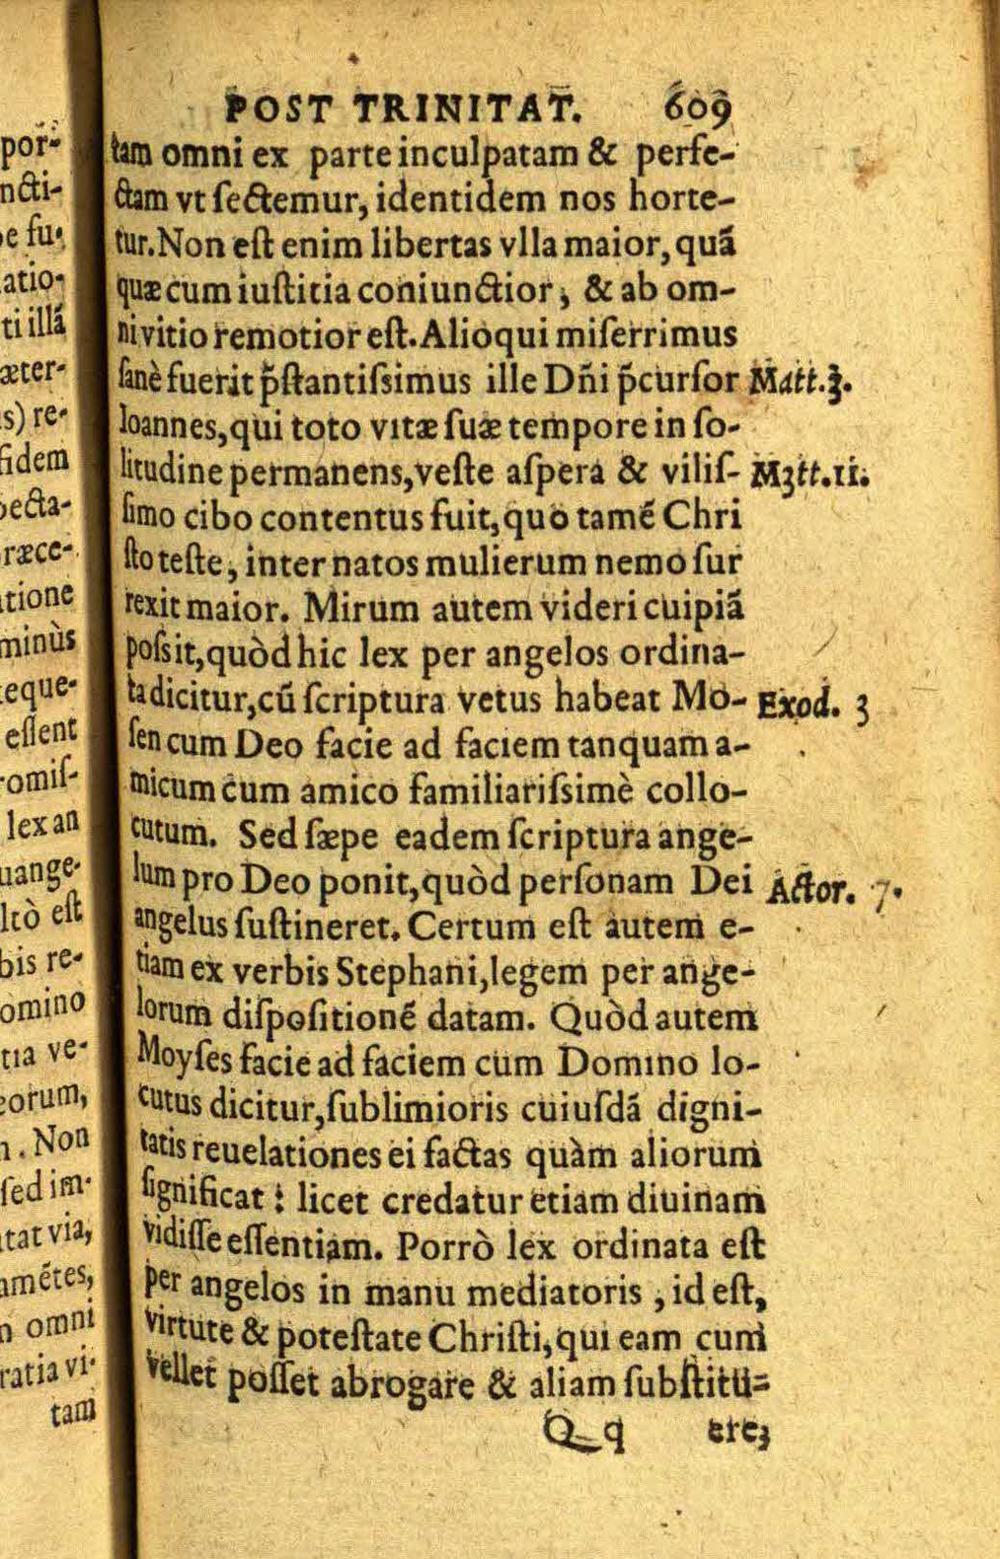 POST TRINITAT. 609
tam omni ex parte inculpatam & perfe-
ctam vt ſectemur, identidem nos horte-
tur. Non eſt enim libertas vlla maior, quã
quæ cum iuſtitia coniunctior, & ab om-
ni vitio remotior eſt. Alioqui miſerrimus
ſanè fuerit p̃ſtantiſsimus ille Dñi p̃curſor Matt. 3.
Ioannes, qui toto vitæ ſuæ tempore in ſo-
litudine permanens, veſte aſpera & viliſ- Matt. 11.
ſimo cibo contentus fuit, quo tamẽ Chri
ſto teſte, inter natos mulierum nemo ſur
rexit maior. Mirum autem videri cuipiã
poſsit, quòd hic lex per angelos ordina-
ta dicitur, cũ ſcriptura vetus habeat Mo- Exod. 3
ſen cum Deo facie ad faciem tanquam a-
micum cum amico familiariſsimè collo-
cutum. Sed ſæpe eadem ſcriptura ange-
lum pro Deo ponit, quòd perſonam Dei Actor. 7.
angelus ſuſtineret. Certum eſt autem e-
tiam ex verbis Stephani, legem per ange-
lorum diſpoſitionẽ datam. Quòd autem
Moyſes facie ad faciem cum Domino lo-
cutus dicitur, ſublimioris cuiuſdã digni-
tatis reuelationes ei factas quàm aliorum
ſignificat: licet credatur etiam diuinam
vidiſſe eſſentiam. Porrò lex ordinata eſt
per angelos in manu mediatoris, id eſt,
virtute & poteſtate Chriſti, qui eam cum
vellet poſſet abrogare & aliam ſubſtitu-
Qq ere;
por-
ncti-
e fu-
atio-
ti illã
æter-
s) re-
fidem
pecta-
ræce-
tione
minùs
eque-
eſſent
omiſ-
lex an
uange-
ltò eſt
bis re-
omino
tia ve-
eorum,
. Non
ſed im-
tat via,
amẽtes,
n omni
ratia vi-
tam